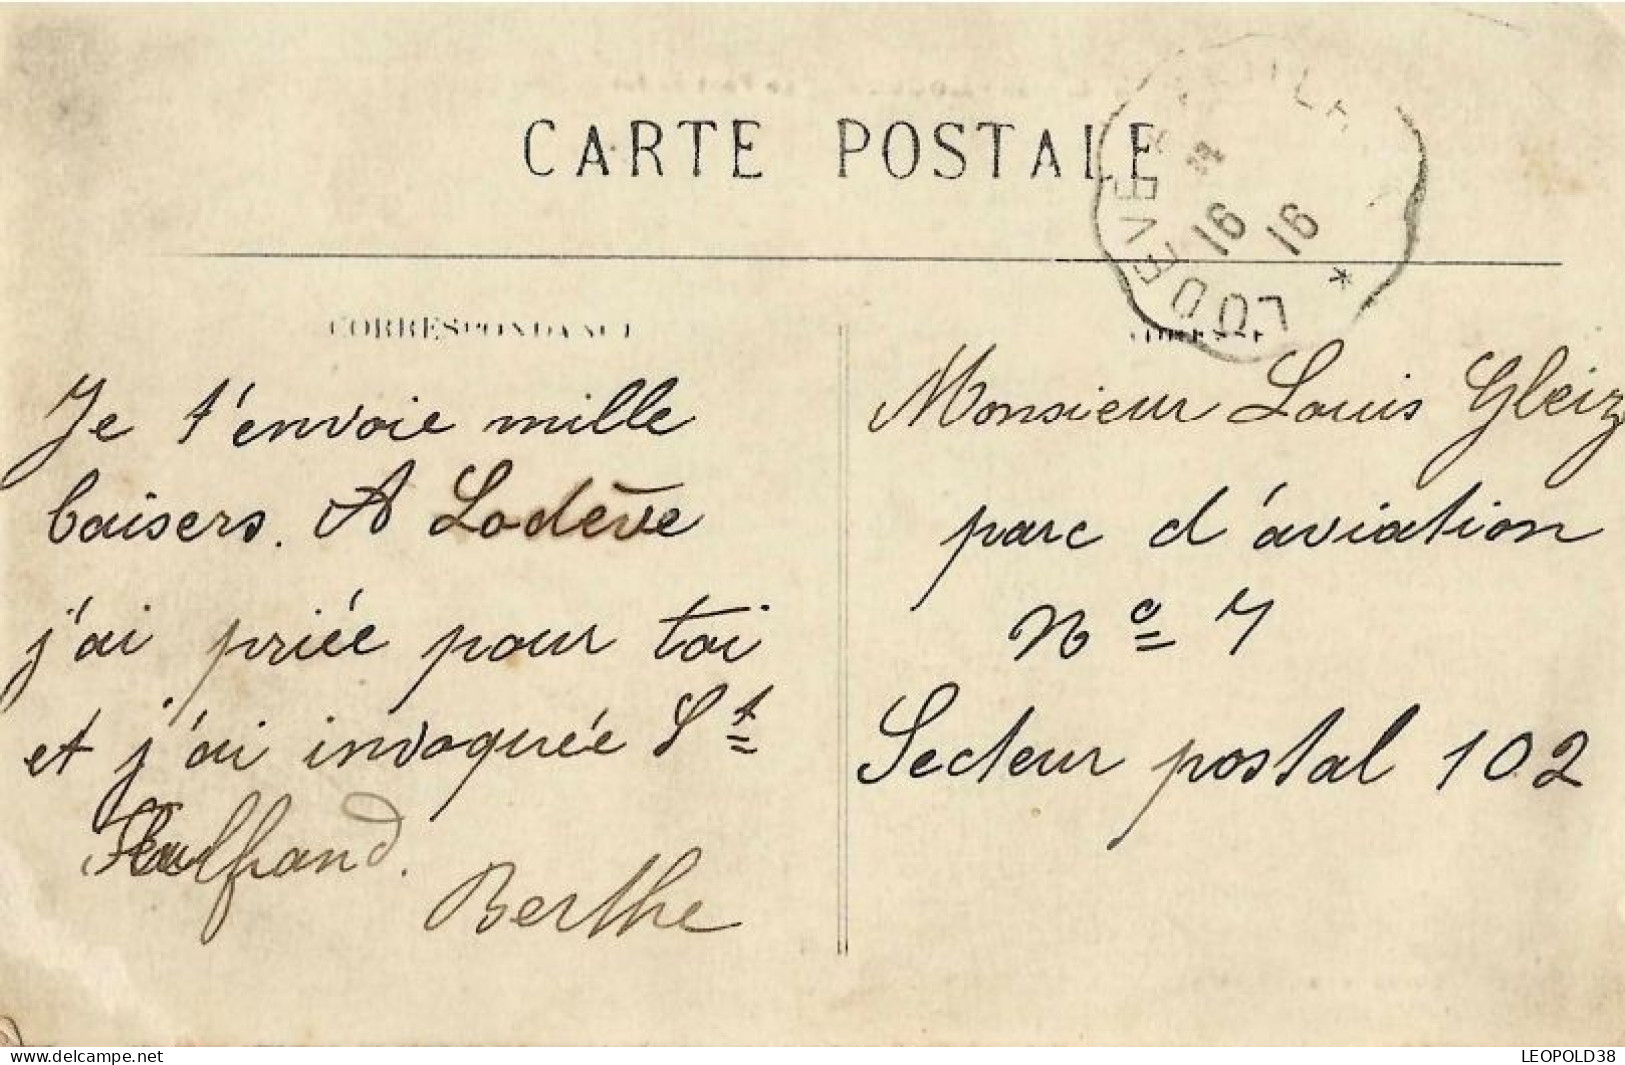 CARTE POSTALE
LODEVE
16
16
*
CORRESPONDANCE
ADRESSE
Je t'envoie mille
baisers. A Lodève
j'ai priée pour toi
et j'ai invoquée St
Fulfrand.
Berthe
Monsieur Louis Gleiz
parc d'aviation
No 7
Secteur postal 102
www.delcampe.net
LEOPOLD38